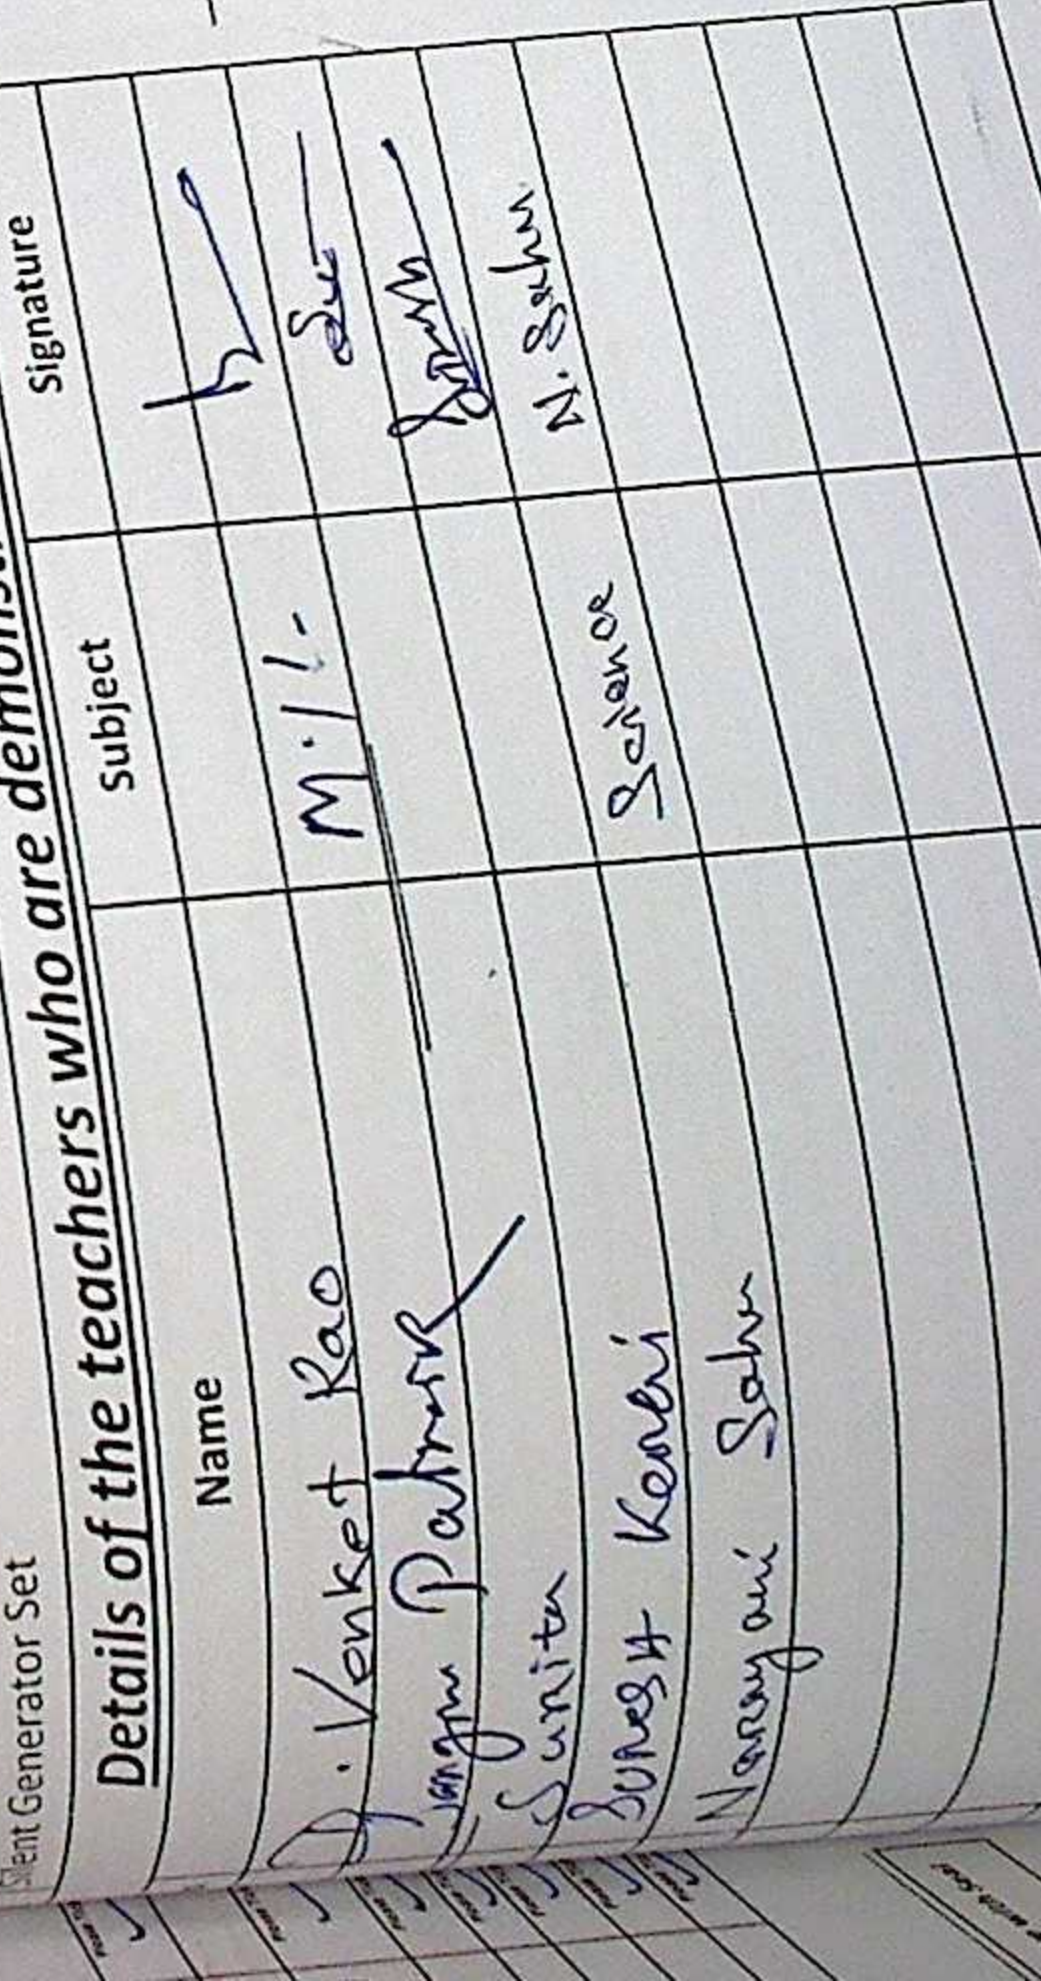 Silent Generator Set
Details of the teachers who are demonst
Name Subject Signature
D. Venket Rao M.I.L.
Patnaik
Sunita
SURESH
Narayani Sahu Science N. Sahu